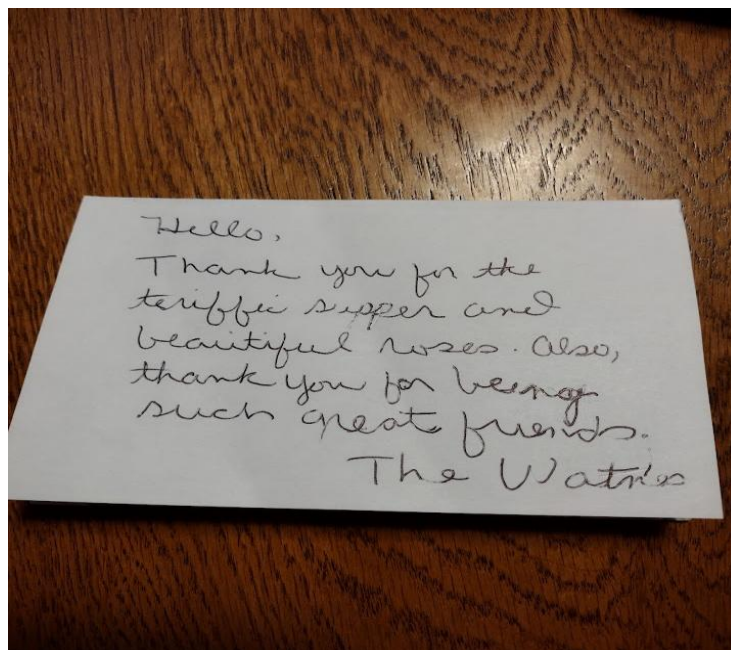 Hello,
Thank you for the
teriffic supper and
beautiful roses. Also,
thank you for being
such great friends.
The Watries